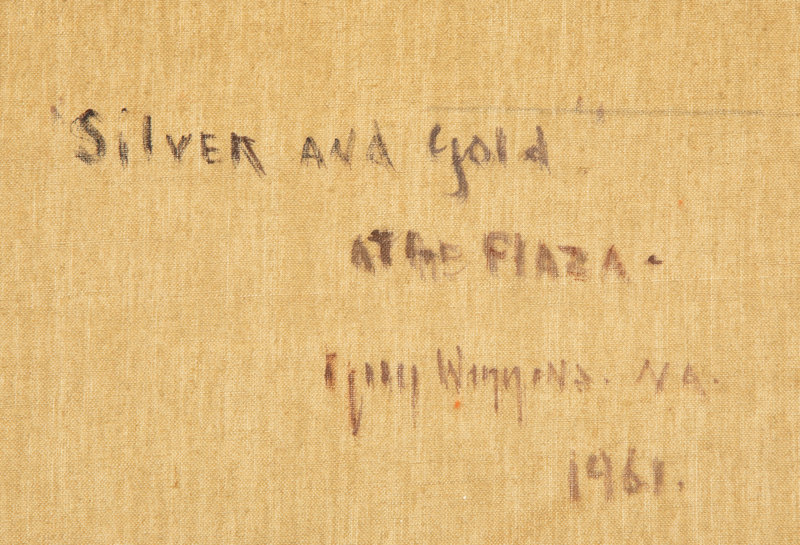 "Silver and Gold
AT THE PLAZA.
Guy Wiggins. N.A.
1961.